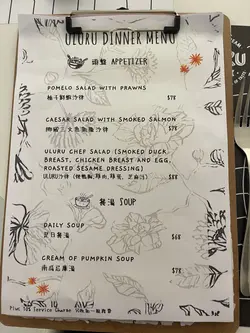 ULURU DINNER MENU
頭盤 APPETIZER
POMELO SALAD WITH PRAWNS
柚子鮮蝦沙律 $78
CAESAR SALAD WITH SMOKED SALMON
$78
ULURU CHEF SALAD (SMOKED DUCK
BREAST, CHICKEN BREAST AND EGG,
ROASTED SESAME DRESSING)
$78
餐湯 SOUP
DAILY SOUP
是日餐湯 $68
CREAM OF PUMPKIN SOUP
南瓜忌廉湯 $78
Plus 10% Service Charge